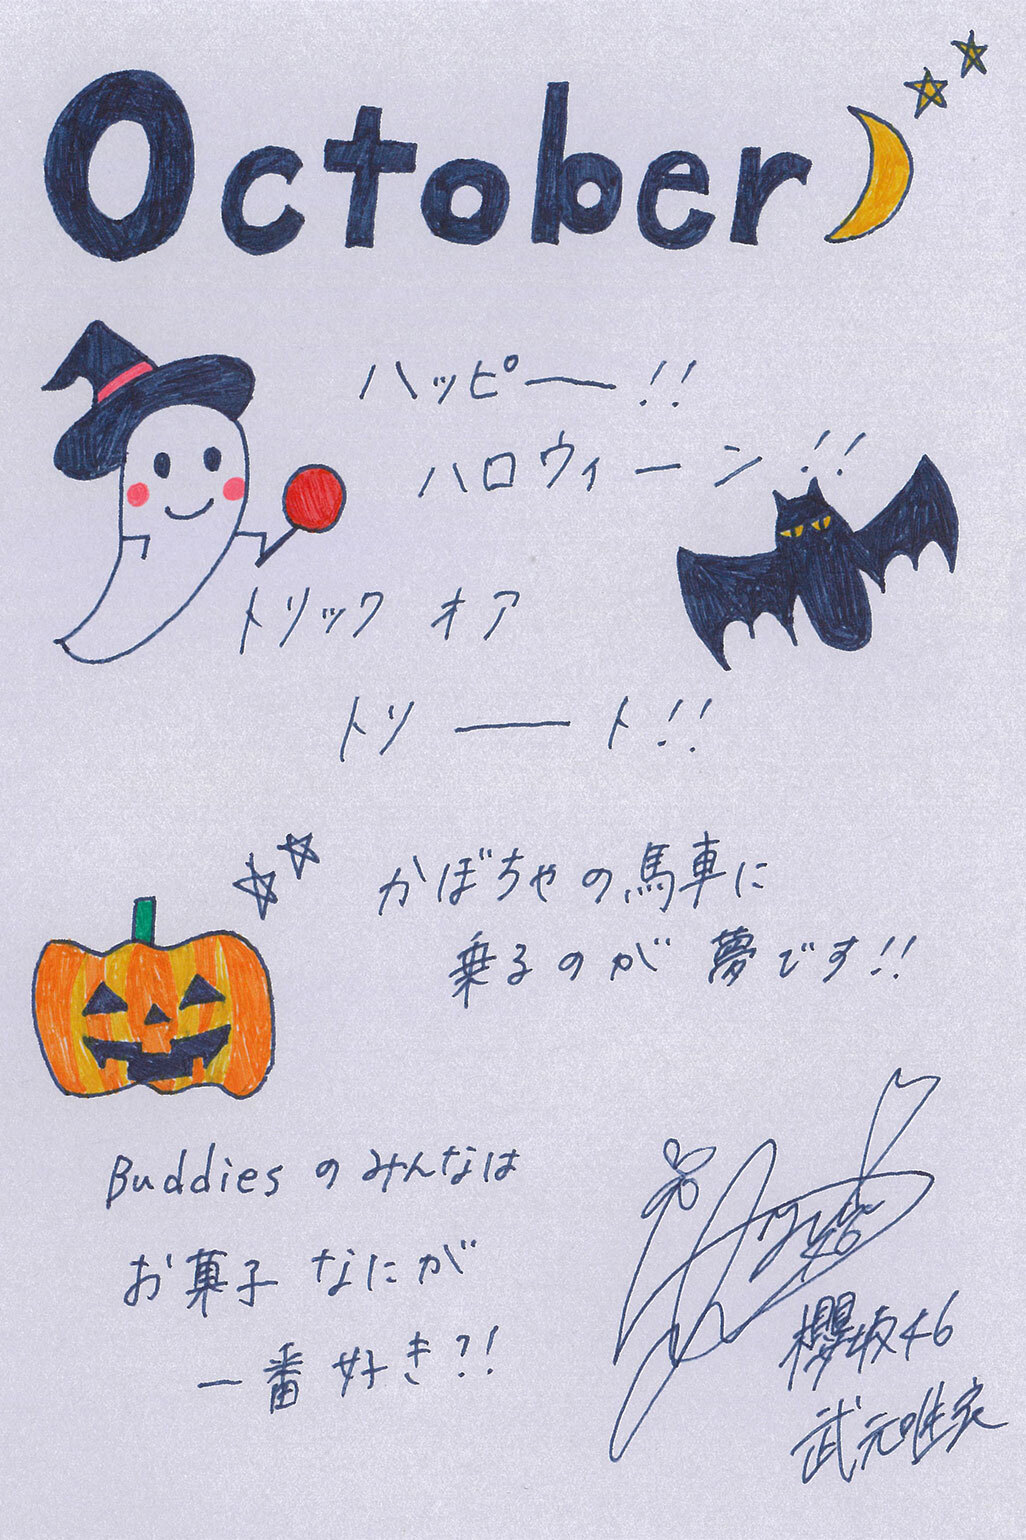 October
ハッピー!!
ハロウィーン!!
トリック オア
トリート!!
かぼちゃの馬車に
乗るのが夢です!!
Buddiesのみんなは
お菓子なにが
一番好き?!
46
櫻坂46
武元唯衣